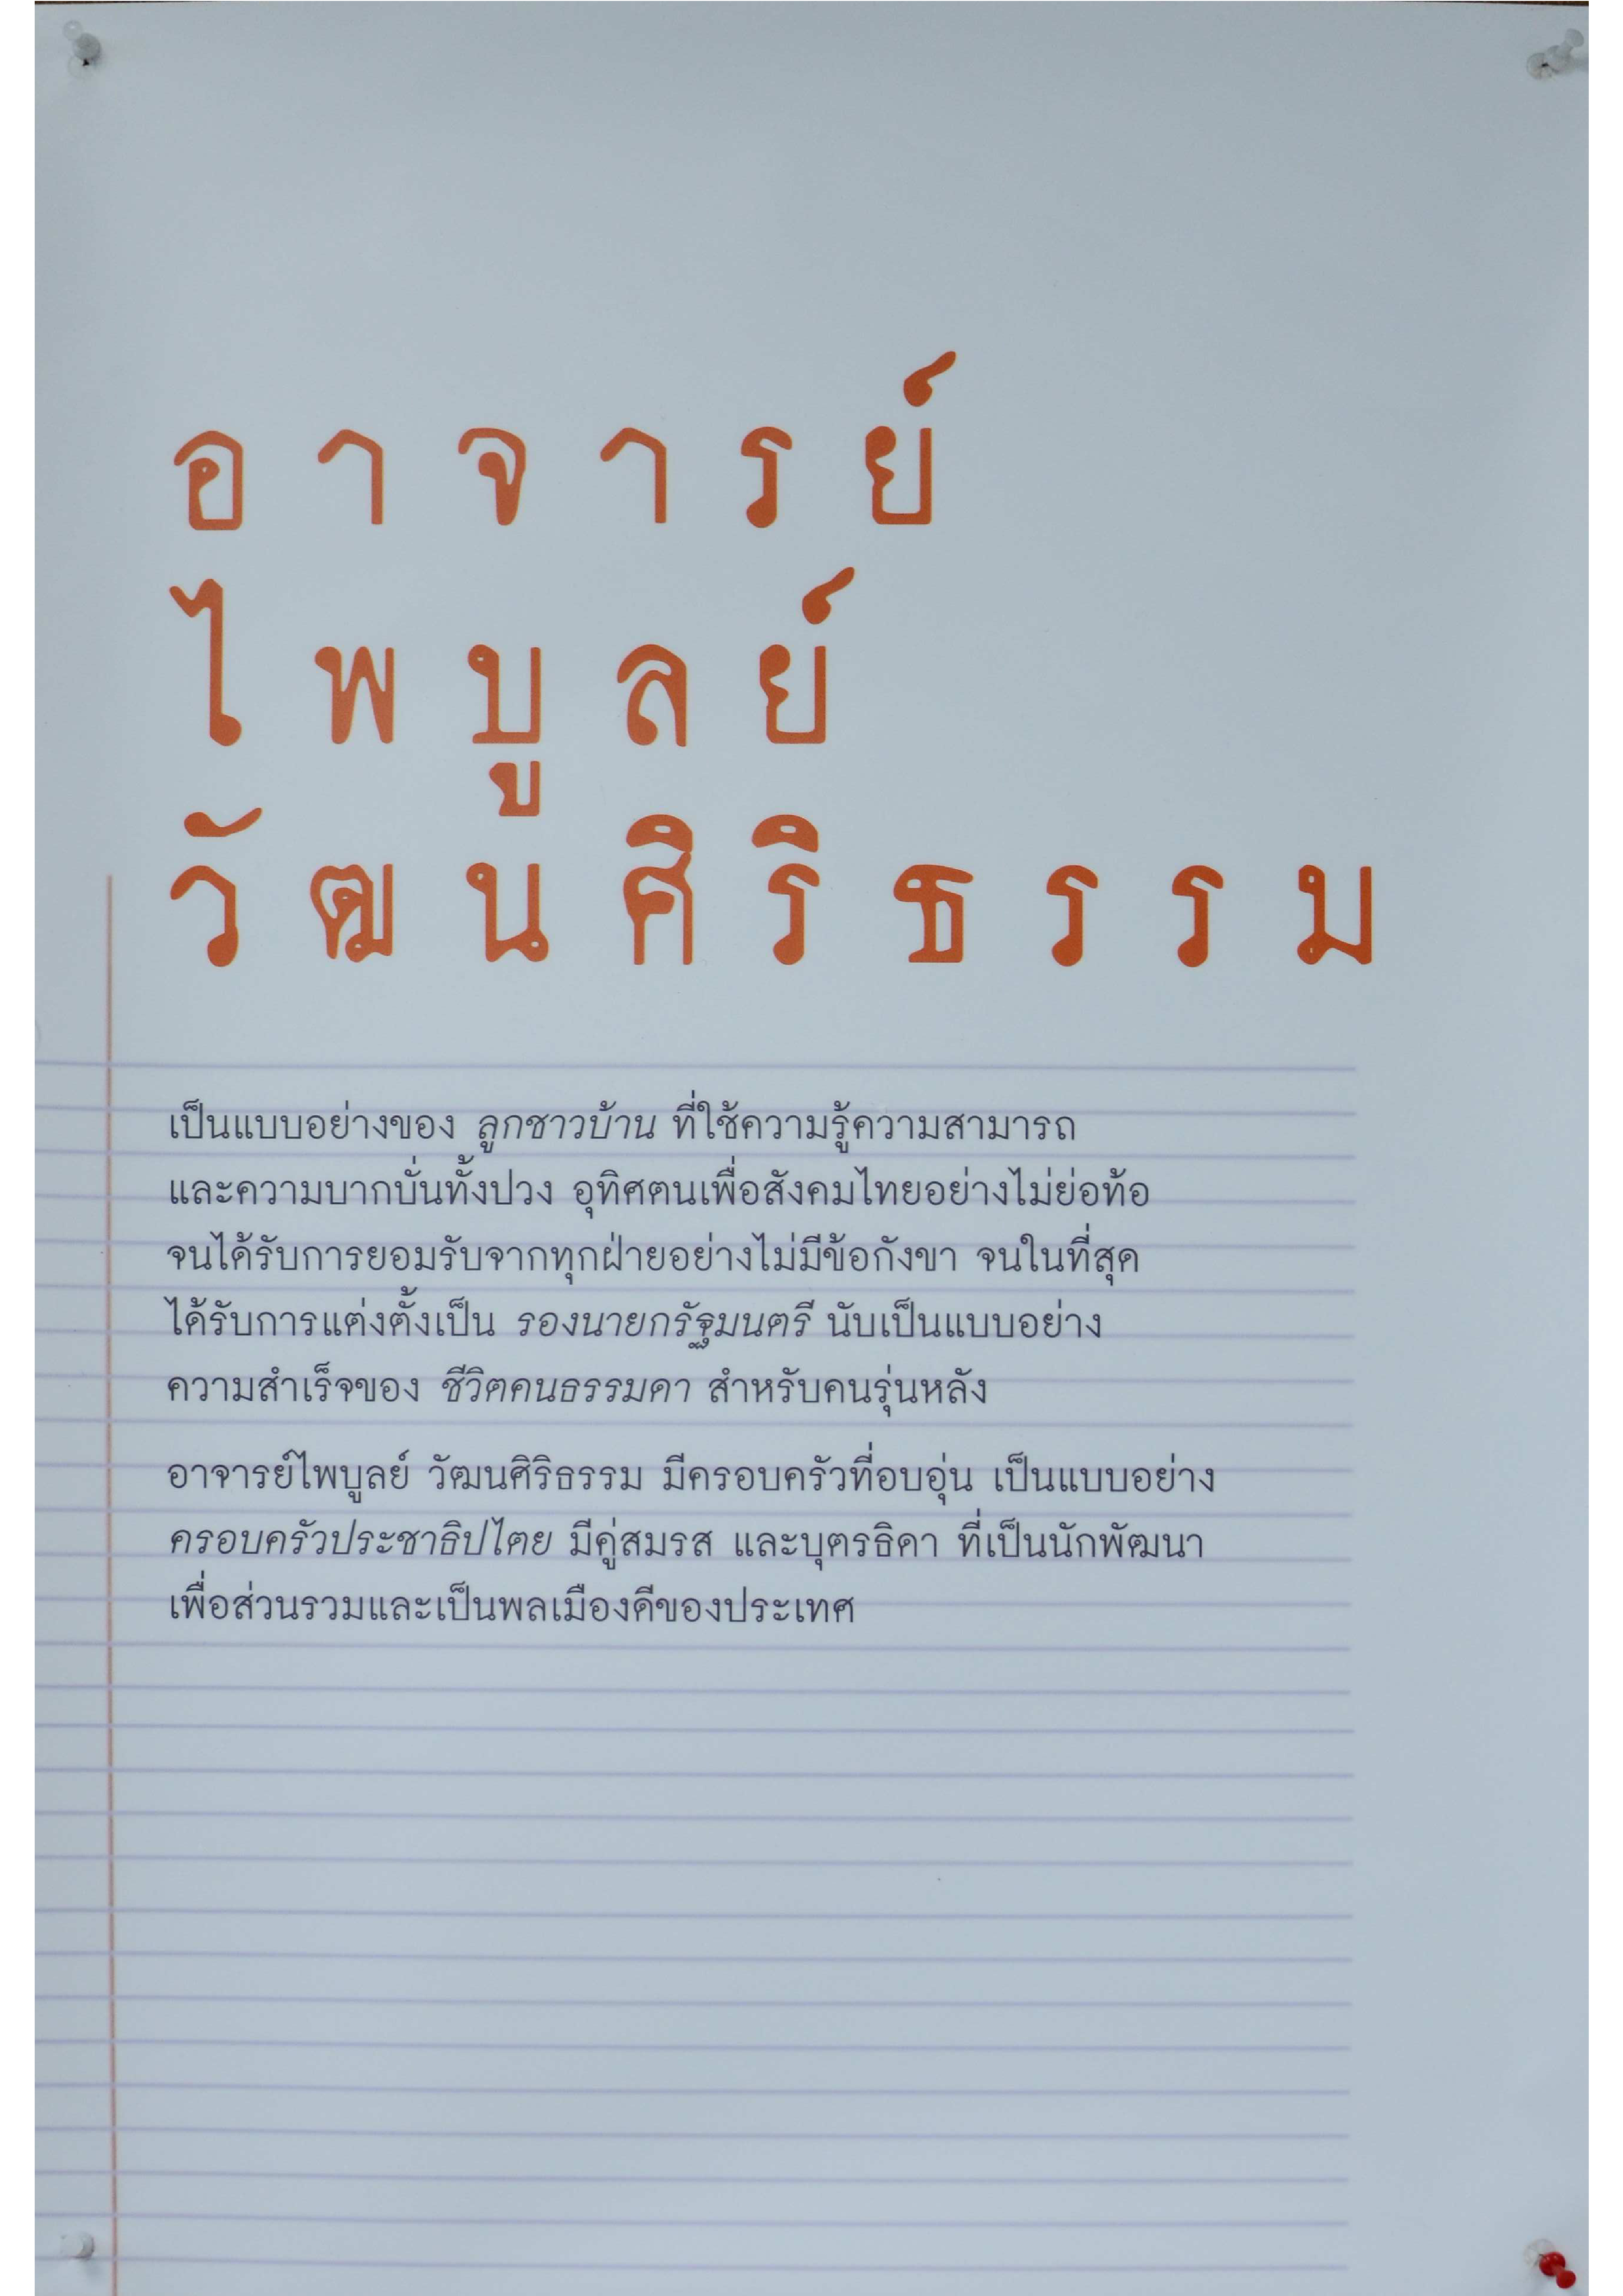 อาจารย์
ไพบูลย์
วัฒนศิริธรรม
เป็นแบบอย่างของ ลูกชาวบ้าน ที่ใช้ความรู้ความสามารถ
และความบากบั่นทั้งปวง อุทิศตนเพื่อสังคมไทยอย่างไม่ย่อท้อ
จนได้รับการยอมรับจากทุกฝ่ายอย่างไม่มีข้อกังขา จนในที่สุด
ได้รับการแต่งตั้งเป็น รองนายกรัฐมนตรี นับเป็นแบบอย่าง
ความสำเร็จของ ชีวิตคนธรรมดา สำหรับคนรุ่นหลัง
อาจารย์ไพบูลย์ วัฒนศิริธรรม มีครอบครัวที่อบอุ่น เป็นแบบอย่าง
ครอบครัวประชาธิปไตย มีคู่สมรส และบุตรธิดา ที่เป็นนักพัฒนา
เพื่อส่วนรวมและเป็นพลเมืองดีของประเทศ